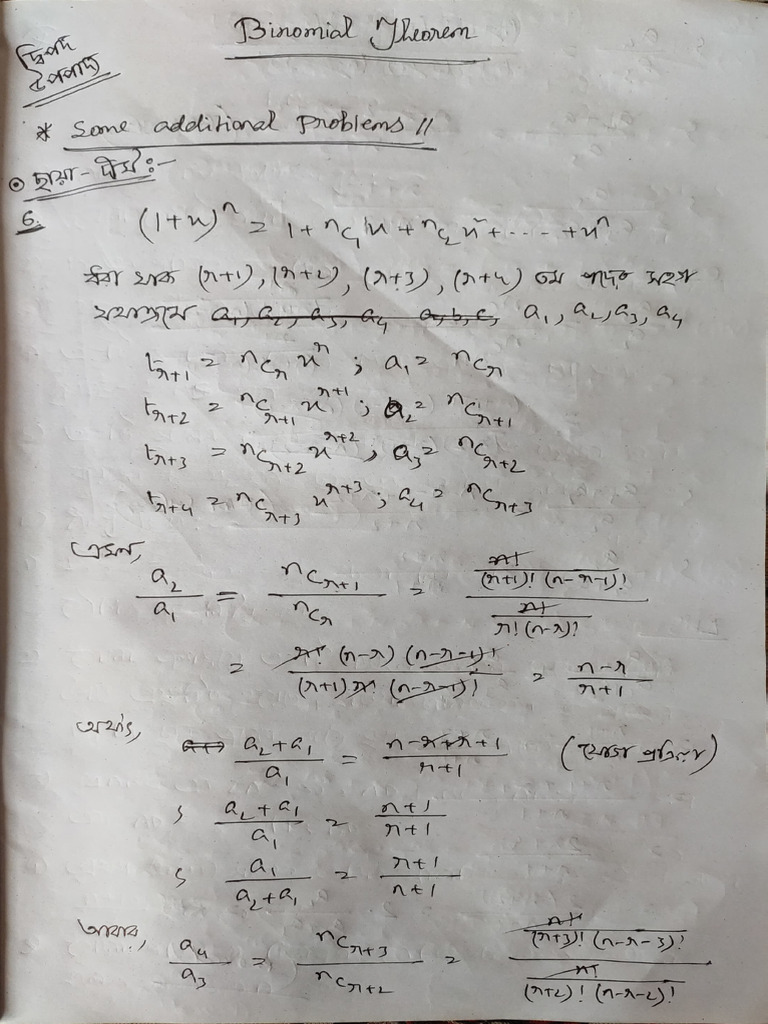 Binomial Theorem
দ্বিপদ
উপপাদ্য
* Some additional Problems //
ছায়া - :-
6. (1+x)ⁿ = 1 + ⁿC₁x + ⁿC₂x² + ... + xⁿ
ধরা যাক (r+1), (r+2), (r+3), (r+4) তম পদের সহগ
যথাক্রমে a₁, a₂, a₃, a₄ a, b, c, a₁, a₂, a₃, a₄
t_{r+1} = ⁿC_r x^r ; a₁ = ⁿC_r
t_{r+2} = ⁿC_{r+1} x^{r+1} ; a₂ = ⁿC_{r+1}
t_{r+3} = ⁿC_{r+2} x^{r+2} ; a₃ = ⁿC_{r+2}
t_{r+4} = ⁿC_{r+3} x^{r+3} ; a₄ = ⁿC_{r+3}
এখন,
a₂/a₁ = ⁿC_{r+1}/ⁿC_r = (n!/((r+1)! (n-r-1)!))/(n!/(r! (n-r)!))
= (r! (n-r) (n-r-1)!)/((r+1) r! (n-r-1)!) = (n-r)/(r+1)
অর্থাৎ, (a₂+a₁)/a₁ = (n-r+r+1)/(r+1) (যোগ প্রক্রিয়া)
(a₂+a₁)/a₁ = (n+1)/(r+1)
a₁/(a₂+a₁) = (r+1)/(n+1)
আবার, a₄/a₃ = ⁿC_{r+3}/ⁿC_{r+2} = (n!/((r+3)! (n-r-3)!))/(n!/((r+2)! (n-r-2)!))